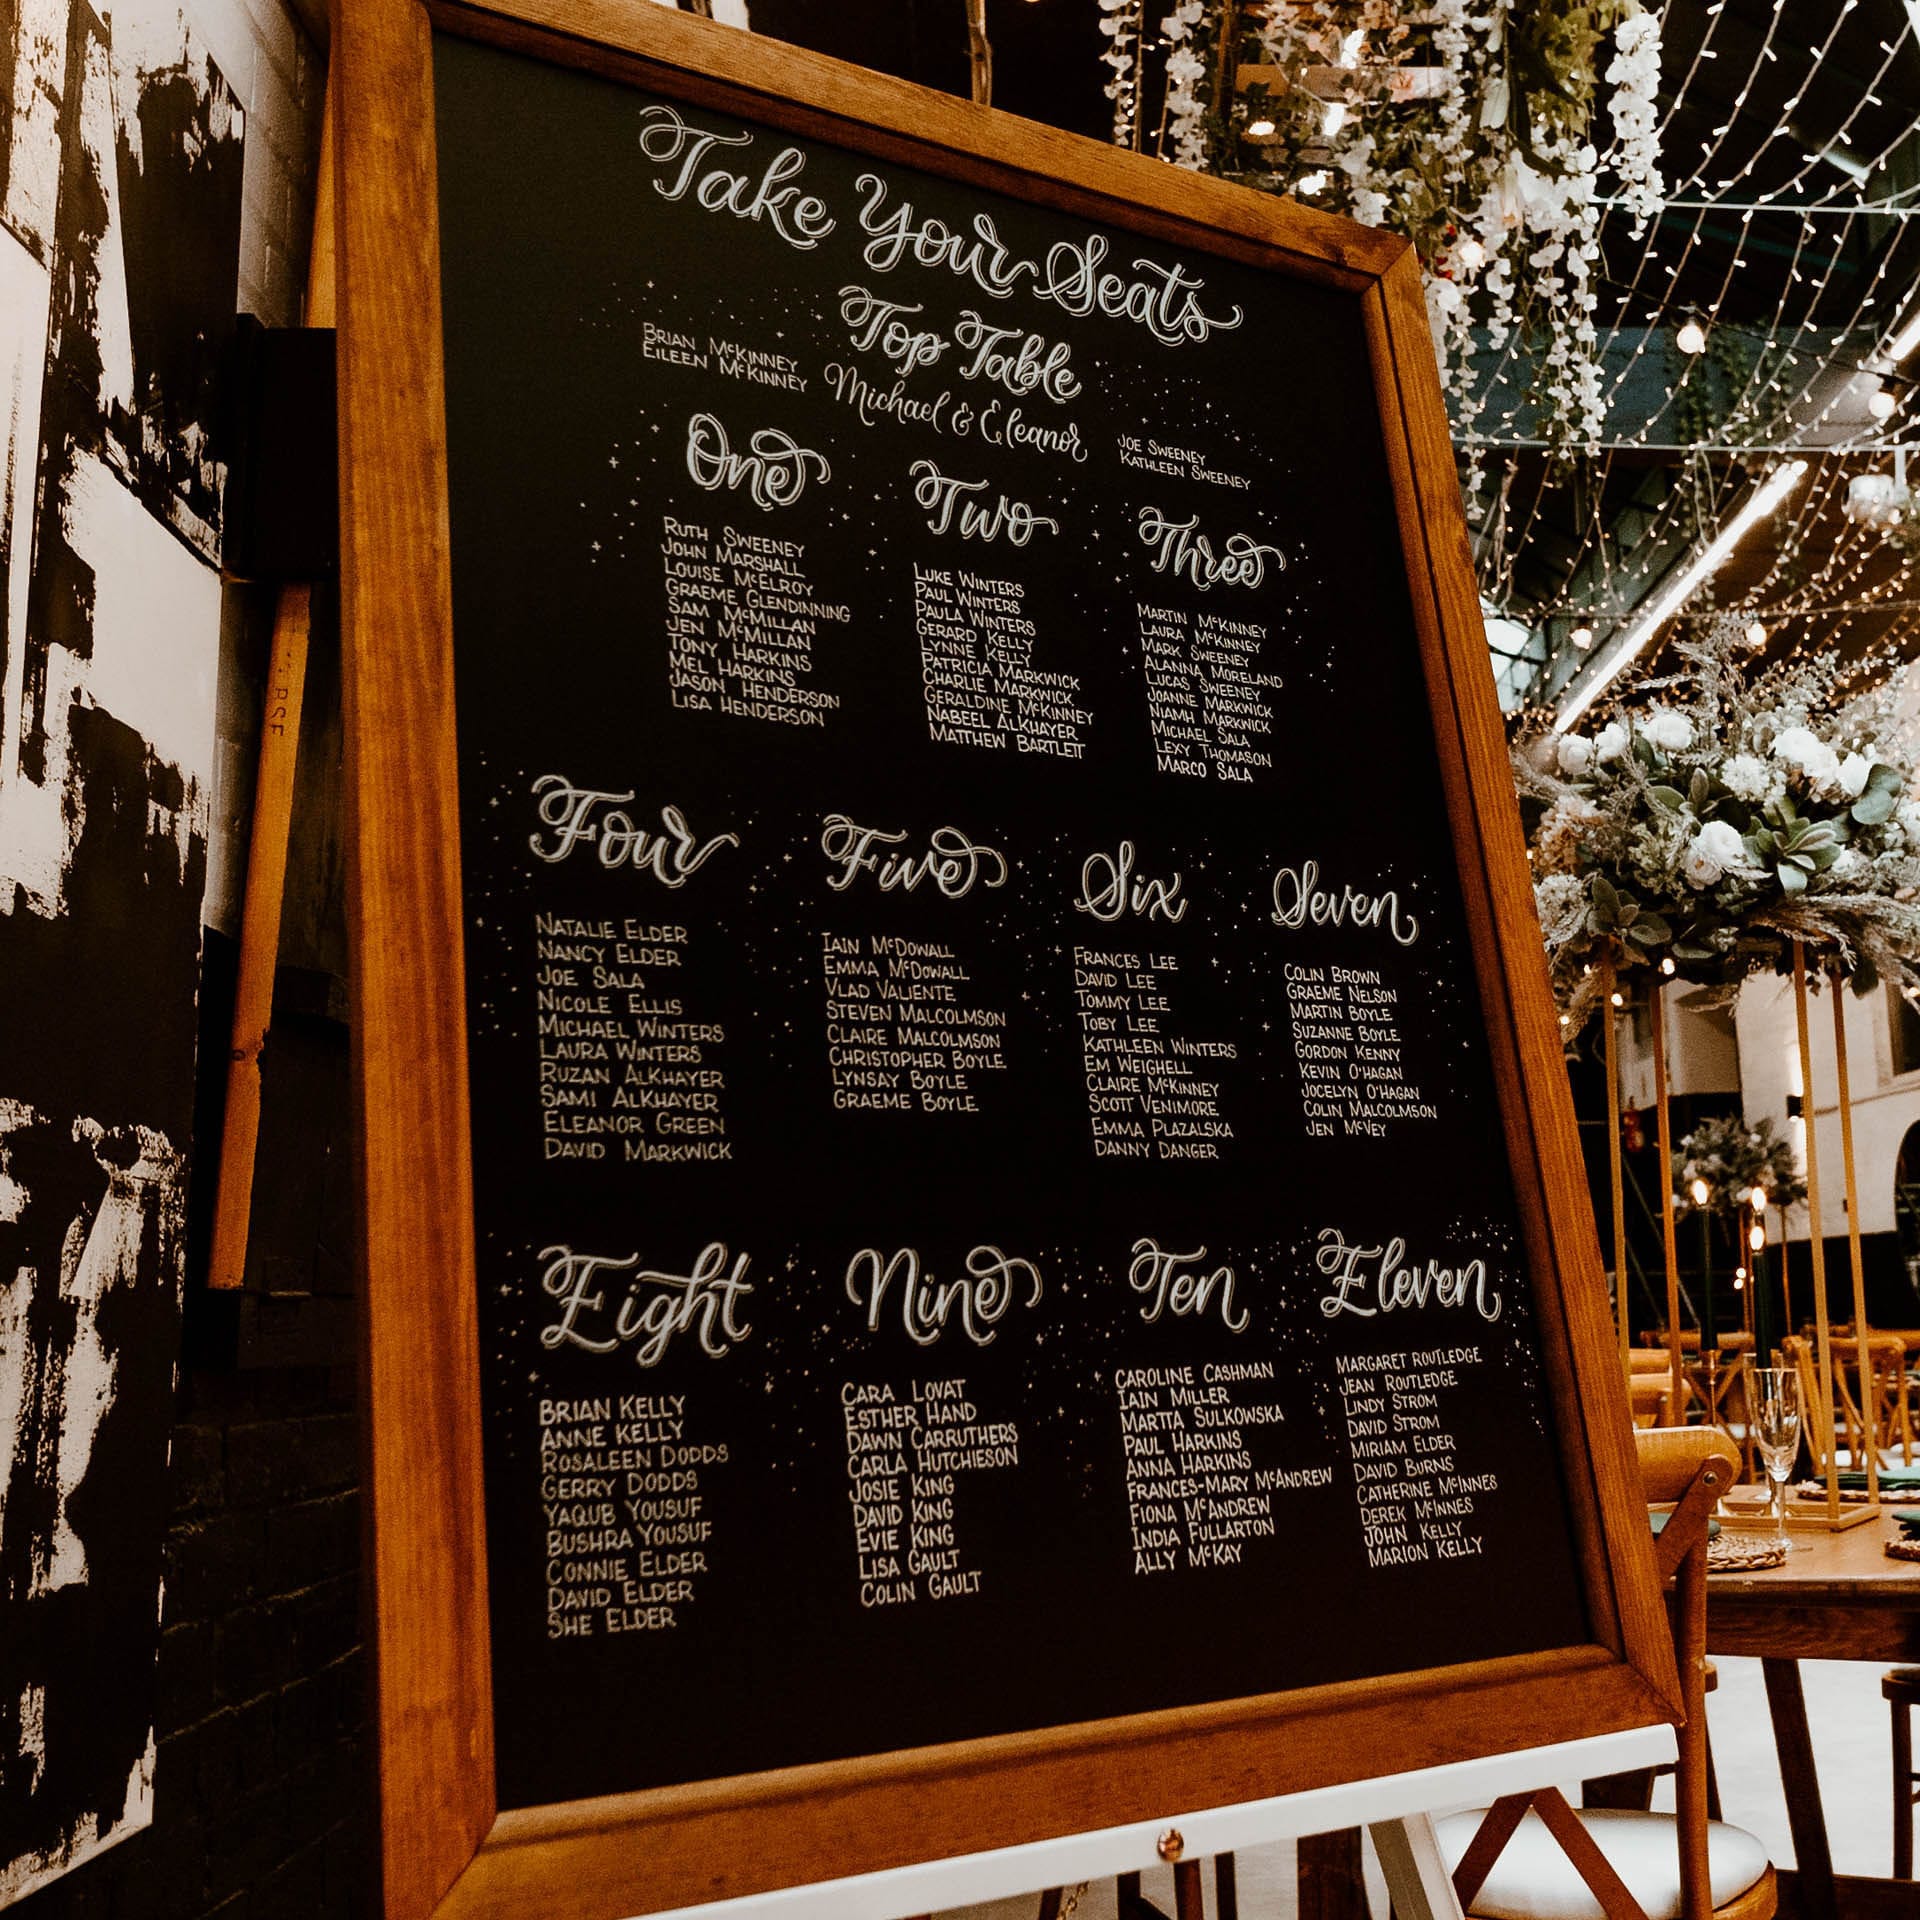 Take Your Seats
Top Table
BRIAN McKINNEY
EILEEN McKINNEY
Michael & Eleanor
JOE SWEENEY
KATHLEEN SWEENEY
One
RUTH SWEENEY
JOHN MARSHALL
LOUISE McELROY
GRAEME GLENDINNING
SAM McMILLAN
JEN McMILLAN
TONY HARKINS
MEL HARKINS
JASON HENDERSON
LISA HENDERSON
Two
LUKE WINTERS
PAUL WINTERS
PAULA WINTERS
GERARD KELLY
LYNNE KELLY
PATRICIA MARKWICK
CHARLIE MARKWICK
GERALDINE McKINNEY
NABEEL ALKHAYER
MATTHEW BARTLETT
Three
MARTIN McKINNEY
LAURA McKINNEY
MARK SWEENEY
ALANNA MORELAND
LUCAS SWEENEY
JOANNE MARKWICK
NIAMH MARKWICK
MICHAEL SALA
LEXY THOMASON
MARCO SALA
Four
NATALIE ELDER
NANCY ELDER
JOE SALA
NICOLE ELLIS
MICHAEL WINTERS
LAURA WINTERS
RUZAN ALKHAYER
SAMI ALKHAYER
ELEANOR GREEN
DAVID MARKWICK
Five
IAIN McDOWALL
EMMA McDOWALL
VLAD VALIENTE
STEVEN MALCOLMSON
CLAIRE MALCOLMSON
CHRISTOPHER BOYLE
LYNSAY BOYLE
GRAEME BOYLE
Six
FRANCES LEE
DAVID LEE
TOMMY LEE
TOBY LEE
KATHLEEN WINTERS
EM WEIGHELL
CLAIRE McKINNEY
SCOTT VENIMORE
EMMA PLAZALSKA
DANNY DANGER
Seven
COLIN BROWN
GRAEME NELSON
MARTIN BOYLE
SUZANNE BOYLE
GORDON KENNY
KEVIN O'HAGAN
JOCELYN O'HAGAN
COLIN MALCOLMSON
JEN McVEY
Eight
BRIAN KELLY
ANNE KELLY
ROSALEEN DODDS
GERRY DODDS
YAQUB YOUSUF
BUSHRA YOUSUF
CONNIE ELDER
DAVID ELDER
SHE ELDER
Nine
CARA LOVAT
ESTHER HAND
DAWN CARRUTHERS
CARLA HUTCHIESON
JOSIE KING
DAVID KING
EVIE KING
LISA GAULT
COLIN GAULT
Ten
CAROLINE CASHMAN
IAIN MILLER
MARTTA SULKOWSKA
PAUL HARKINS
ANNA HARKINS
FRANCES-MARY McANDREW
FIONA McANDREW
INDIA FULLARTON
ALLY McKAY
Eleven
MARGARET ROUTLEDGE
JEAN ROUTLEDGE
LINDY STROM
DAVID STROM
MIRIAM ELDER
DAVID BURNS
CATHERINE McINNES
DEREK McINNES
JOHN KELLY
MARION KELLY